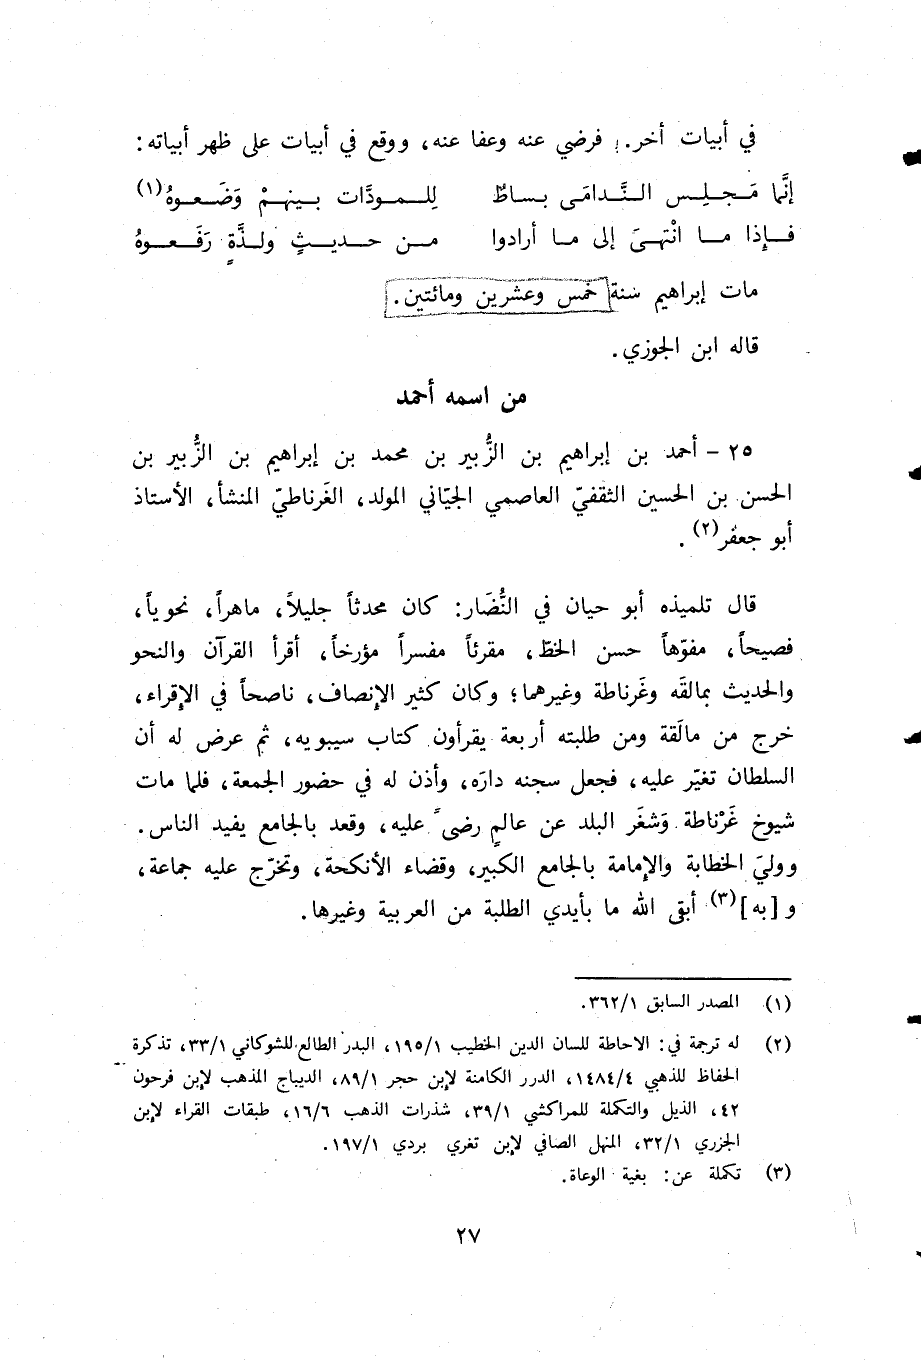 في أبيات أخر. فرضي عنه وعفا عنه، ووقع في أبيات على ظهر أبياته:
إنَّما مَجلِس النَّدامَى بساطٌ للمودَّات بينهمْ وَضَعوهُ(١)
فإذا ما انْتهىَ إلى ما أرادوا من حديثٍ ولذَّةٍ رَفَعوهُ
مات إبراهيم سنة خمس وعشرين ومائتين.
قاله ابن الجوزي.
من اسمه أحمد
٢٥ - أحمد بن إبراهيم بن الزُّبير بن محمد بن إبراهيم بن الزُّبير بن
الحسن بن الحسين الثقفيّ العاصمي الجيّاني المولد، الغَرناطيّ المنشأ، الأستاذ
أبو جعفر(٢).
قال تلميذه أبو حيان في النُّضَار: كان محدثاً جليلاً، ماهراً، نحوياً،
فصيحاً، مفوّهاً حسن الخطّ، مقرئاً مفسراً مؤرخاً، أقرأ القرآن والنحو
والحديث بمالقَه وغَرناطة وغيرهما؛ وكان كثير الإنصاف، ناصحاً في الإقراء،
خرج من مالَقة ومن طلبته أربعة يقرأون كتاب سيبويه، ثم عرض له أن
السلطان تغيّر عليه، فجعل سجنه دارَه، وأذن له في حضور الجمعة، فلما مات
شيوخ غَرْناطة وَشغَر البلد عن عالمٍ رضىً عليه، وقعد بالجامع يفيد الناس.
ووليَ الخطابة والإمامة بالجامع الكبير، وقضاء الأنكحة، وتخرّج عليه جماعة،
و [به](٣) أبقى الله ما بأيدي الطلبة من العربية وغيرها.
(١) المصدر السابق ٣٦٢/١.
(٢) له ترجمة في: الاحاطة للسان الدين الخطيب ١٩٥/١، البدر الطالع للشوكاني ٣٣/١، تذكرة
الحفاظ للذهبي ١٤٨٤/٤، الدرر الكامنة لإبن حجر ٨٩/١، الديباج المذهب لإبن فرحون
٤٢، الذيل والتكملة للمراكشي ٣٩/١، شذرات الذهب ١٦/٦، طبقات القراء لإبن
الجزري ٣٢/١، المنهل الصافي لإبن تغري بردي ١٩٧/١.
(٣) تكملة عن: بغية الوعاة.
٢٧